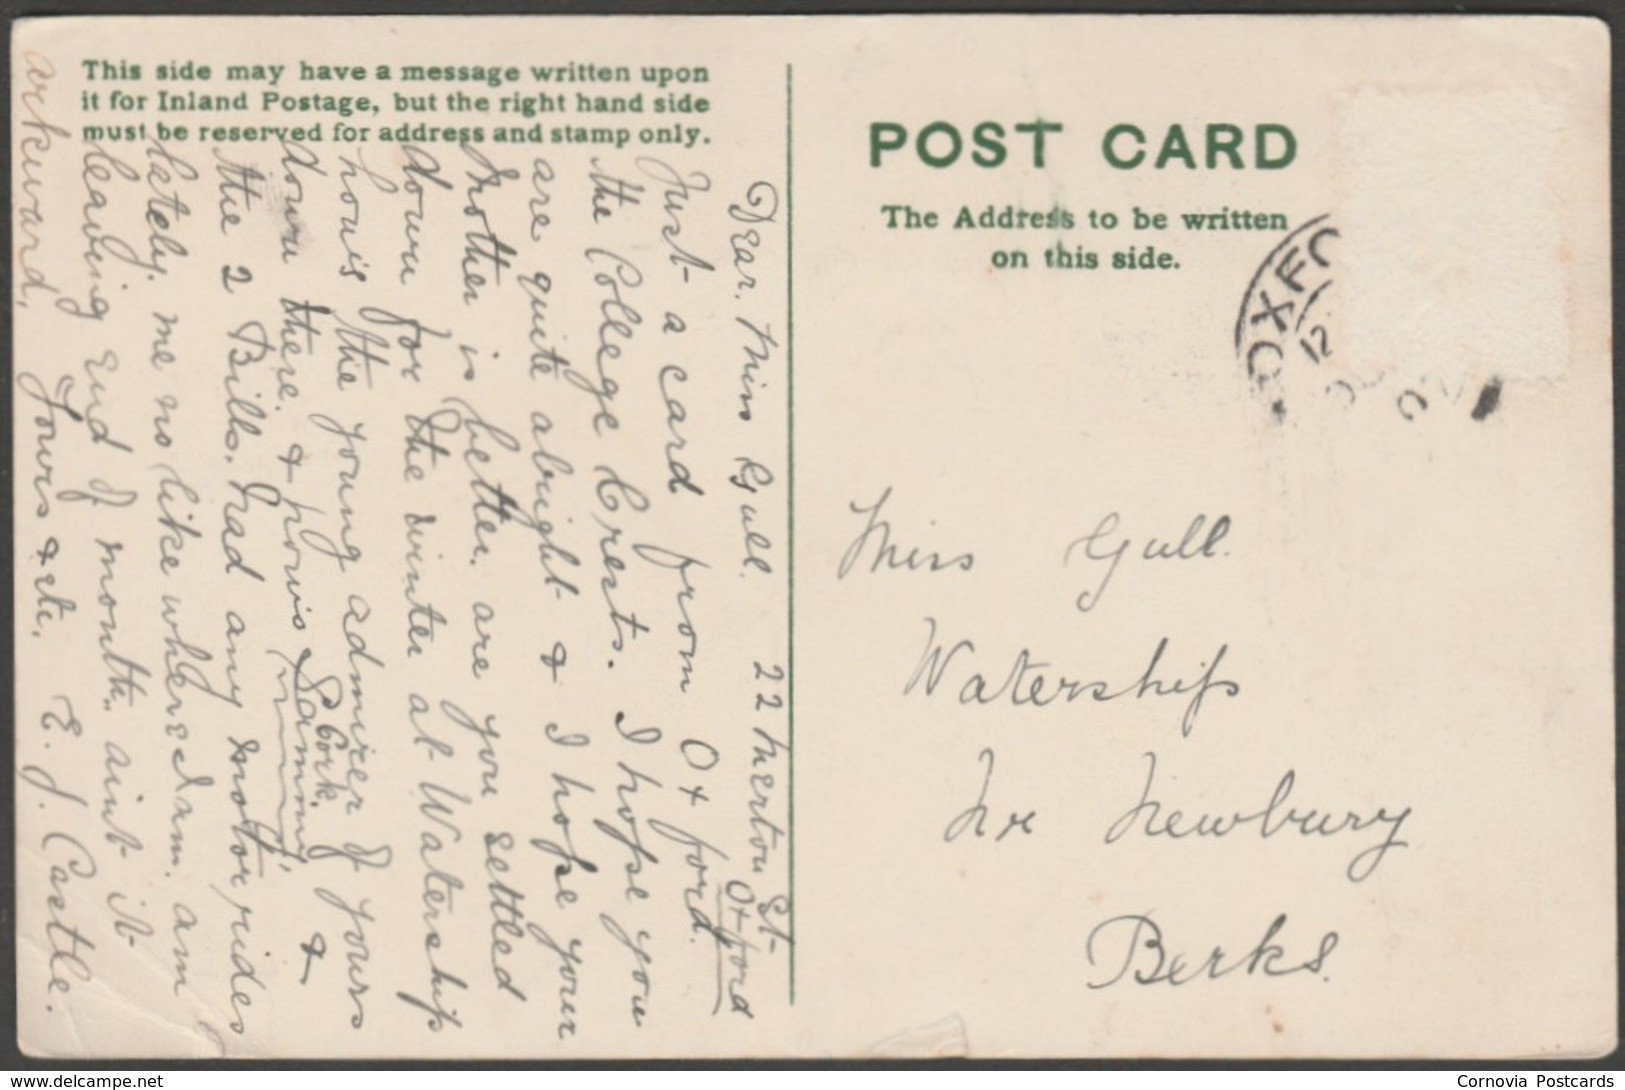 This side may have a message written upon
it for Inland Postage, but the right hand side
must be reserved for address and stamp only.
POST CARD
The Address to be written
on this side.
OXFO
12
22 Merton St
Oxford
Dear. Miss Gull.
Just a card from Oxford.
the College Crests. I hope you
are quite abright & I hope your
Mother is better. are you settled
down for the winter at Watership
how is the young admirer of yours
down there. & how is Sammy &
Cork.
the 2 Bills. had any motor rides
lately. me no like where I am. am
leaving end of month. aint it
arkward. Yours &etc. E. J. Castle.
Miss Gull.
Watership
Nr Newbury
Berks.
Cornovia Postcards
www.delcampe.net